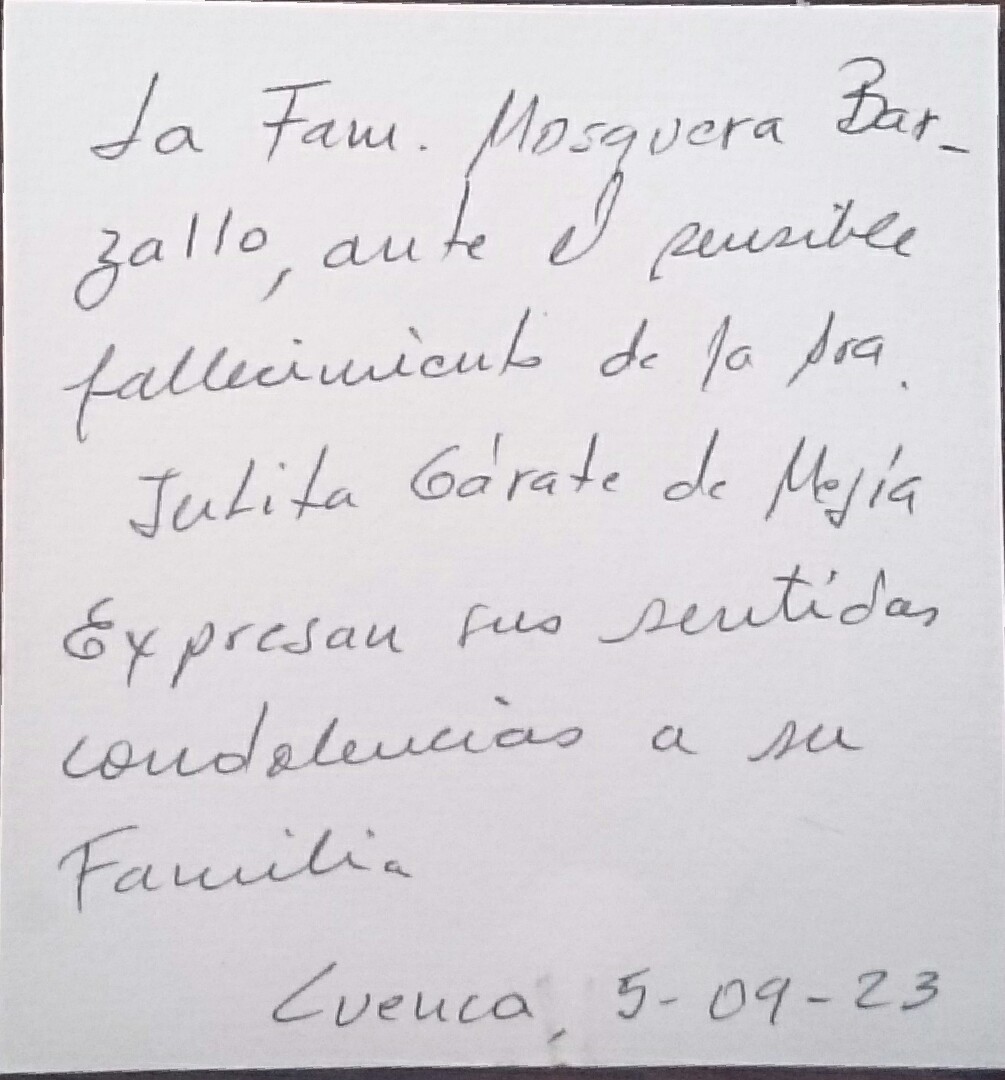 La Fam. Mosquera Bar-
zallo, ante el sensible
fallecimiento de la Sra.
Julita Gárate de Mejía
Expresan sus sentidas
condolencias a su
Familia
Cuenca, 5-09-23